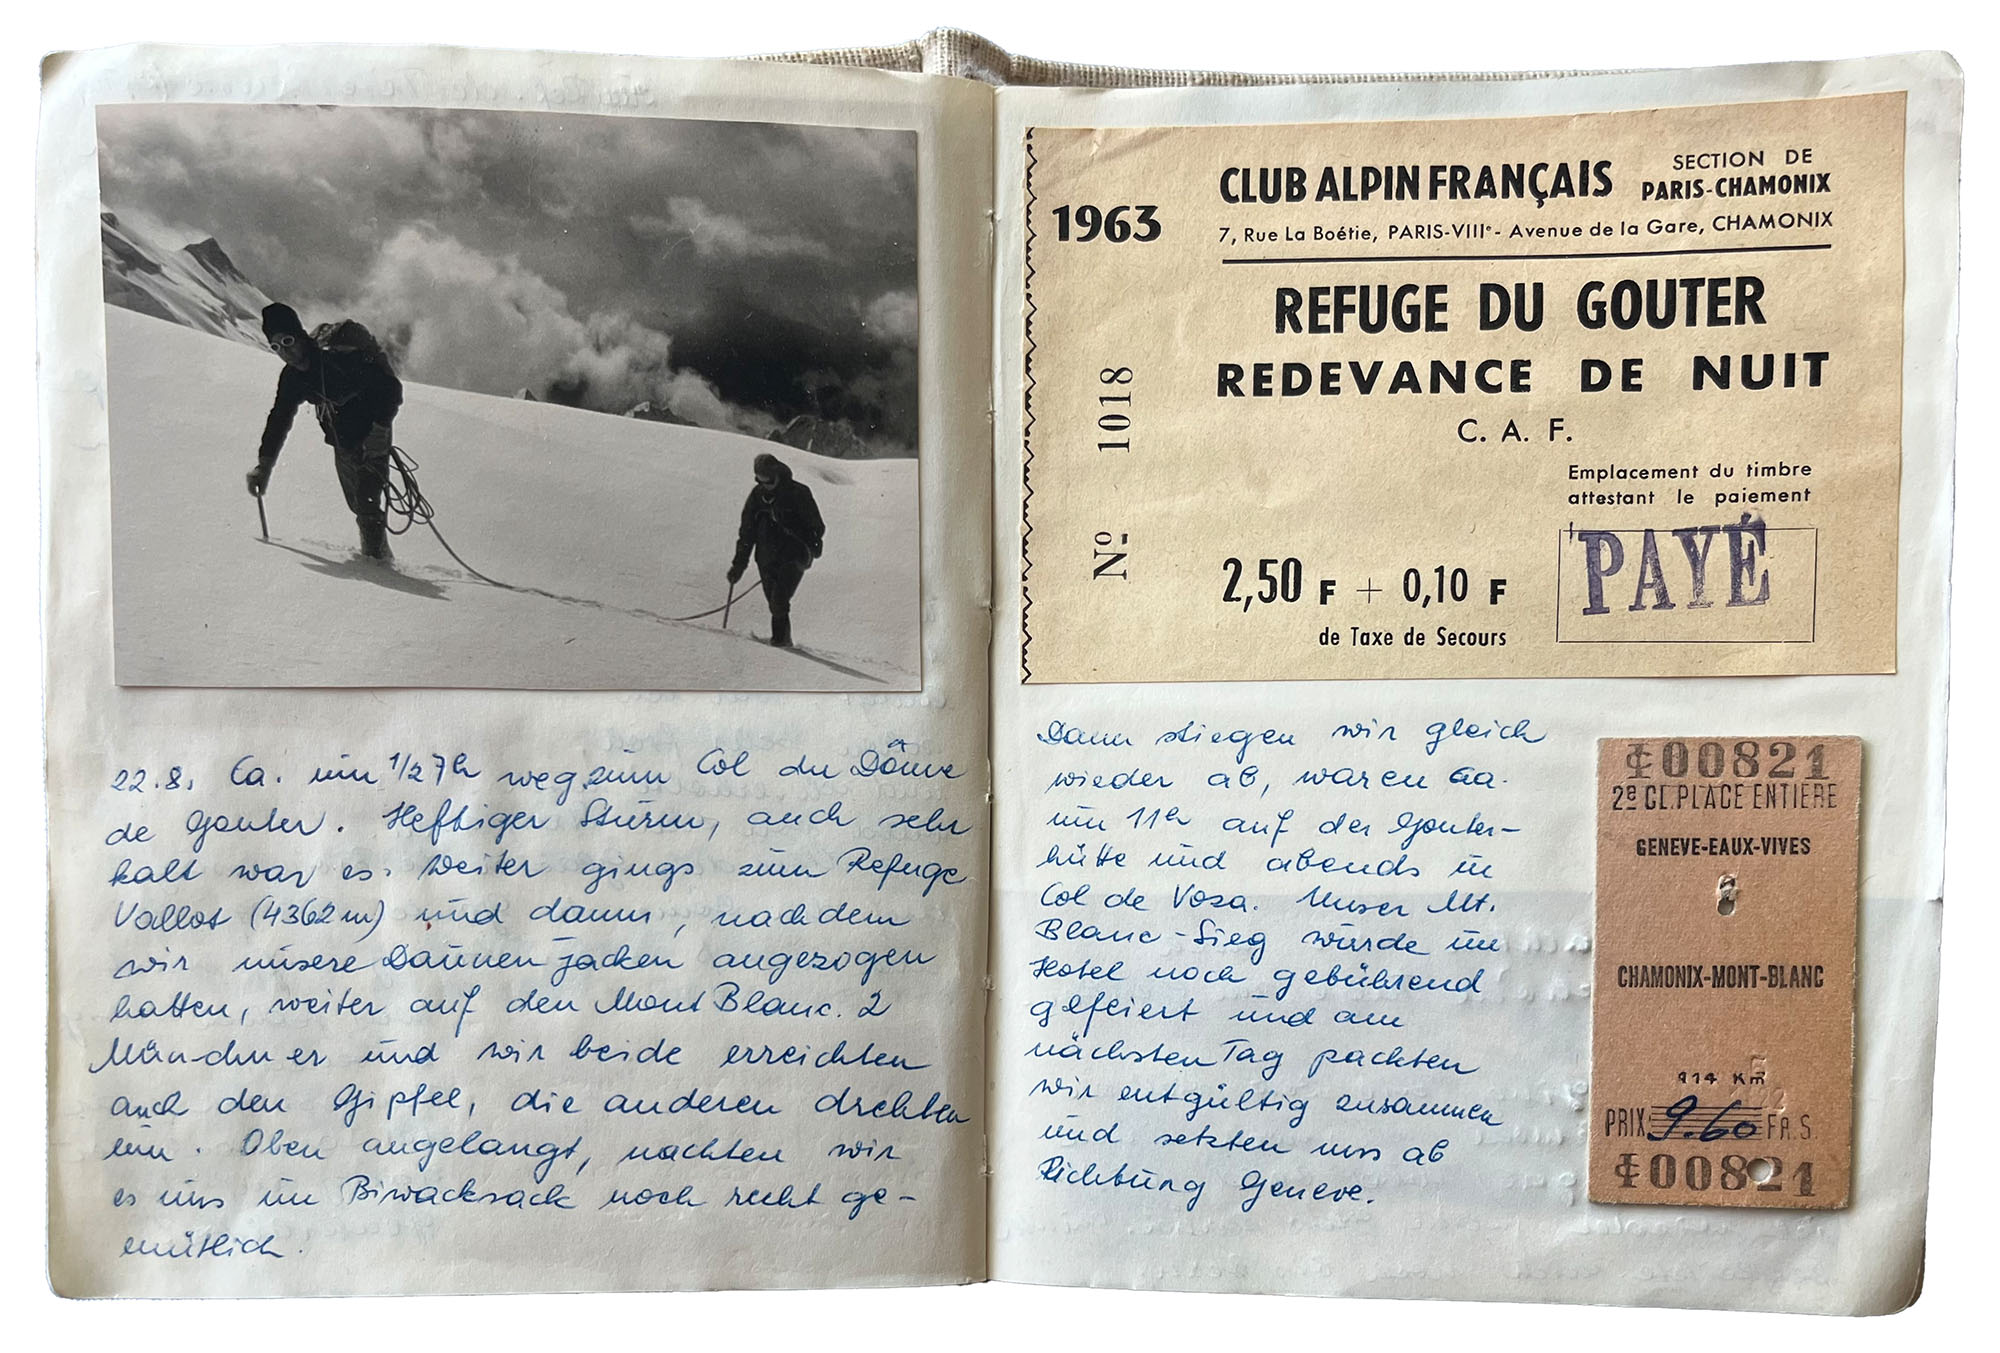 22.8. Ca. um 1/2 7h weg zum Col du Dôme
de Gouter. Heftiger Sturm, auch sehr
kalt war es. Weiter gings zum Refuge
Vallot (4362 m) und dann, nachdem
wir unsere Daunenjacken angezogen
hatten, weiter auf den Mont Blanc. 2
Münchner und wir beide erreichten
auch den Gipfel, die anderen drehten
um. Oben angelangt, machten wir
es uns im Biwacksack noch recht ge-
mütlich.
1963
CLUB ALPIN FRANÇAIS
SECTION DE
PARIS-CHAMONIX
7, Rue La Boétie, PARIS-VIIIe - Avenue de la Gare, CHAMONIX
REFUGE DU GOUTER
REDEVANCE DE NUIT
C. A. F.
No 1018
Emplacement du timbre
attestant le paiement
PAYÉ
2,50 F + 0,10 F
de Taxe de Secours
Dann stiegen wir gleich
wieder ab, waren ca.
um 11h auf der Gouter-
hütte und abends in
Col de Voza. Unser Mt.
Blanc-Sieg wurde im
Hotel noch gebührend
gefeiert und am
nächsten Tag packten
wir entgültig zusammen
und setzten uns ab
Richtung Geneve.
00821
2e CL. PLACE ENTIERE
GENEVE-EAUX-VIVES
CHAMONIX-MONT-BLANC
114 Km
PRIX 9.60 FR.S.
00821